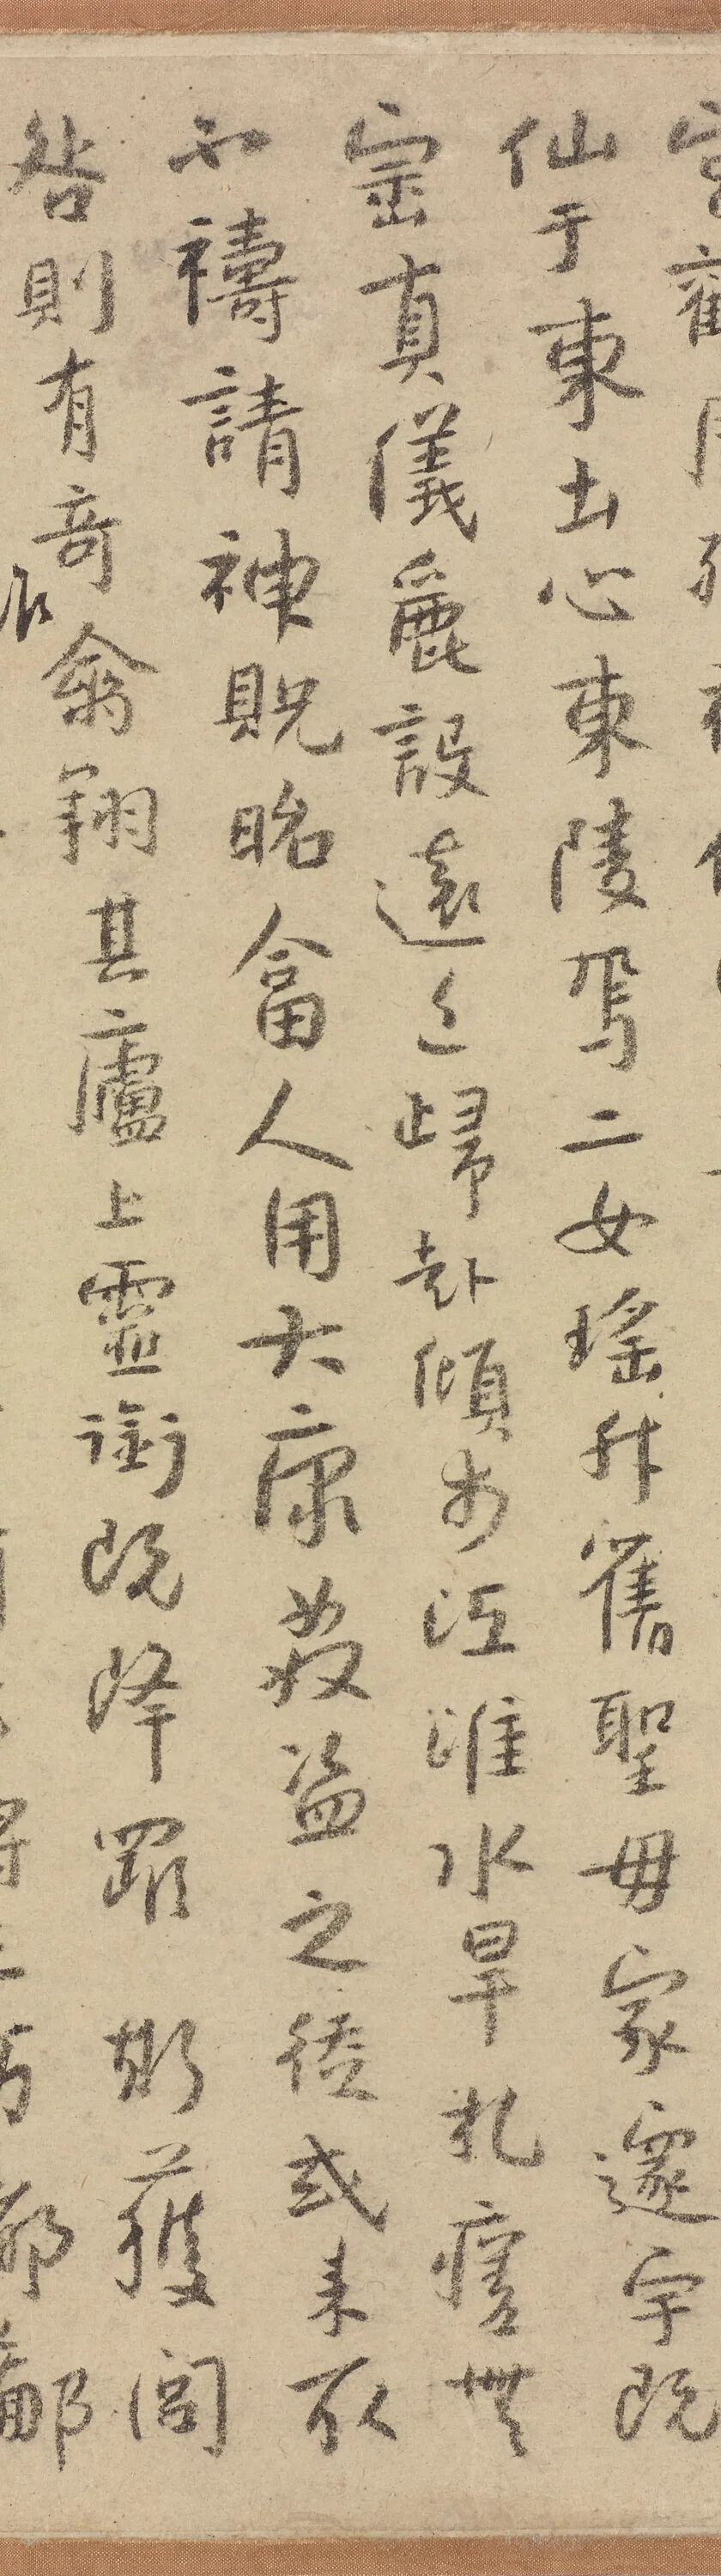 仙于東土心東陵焉二女瑤升舊聖母家邃宇既
崇真儀麗設遠近歸赴傾江淮水旱札瘥無
不禱請神貺昭畣人用大康盜之徒或未
咎則有奇禽翔其廬上靈銜既降罪斯獲閭